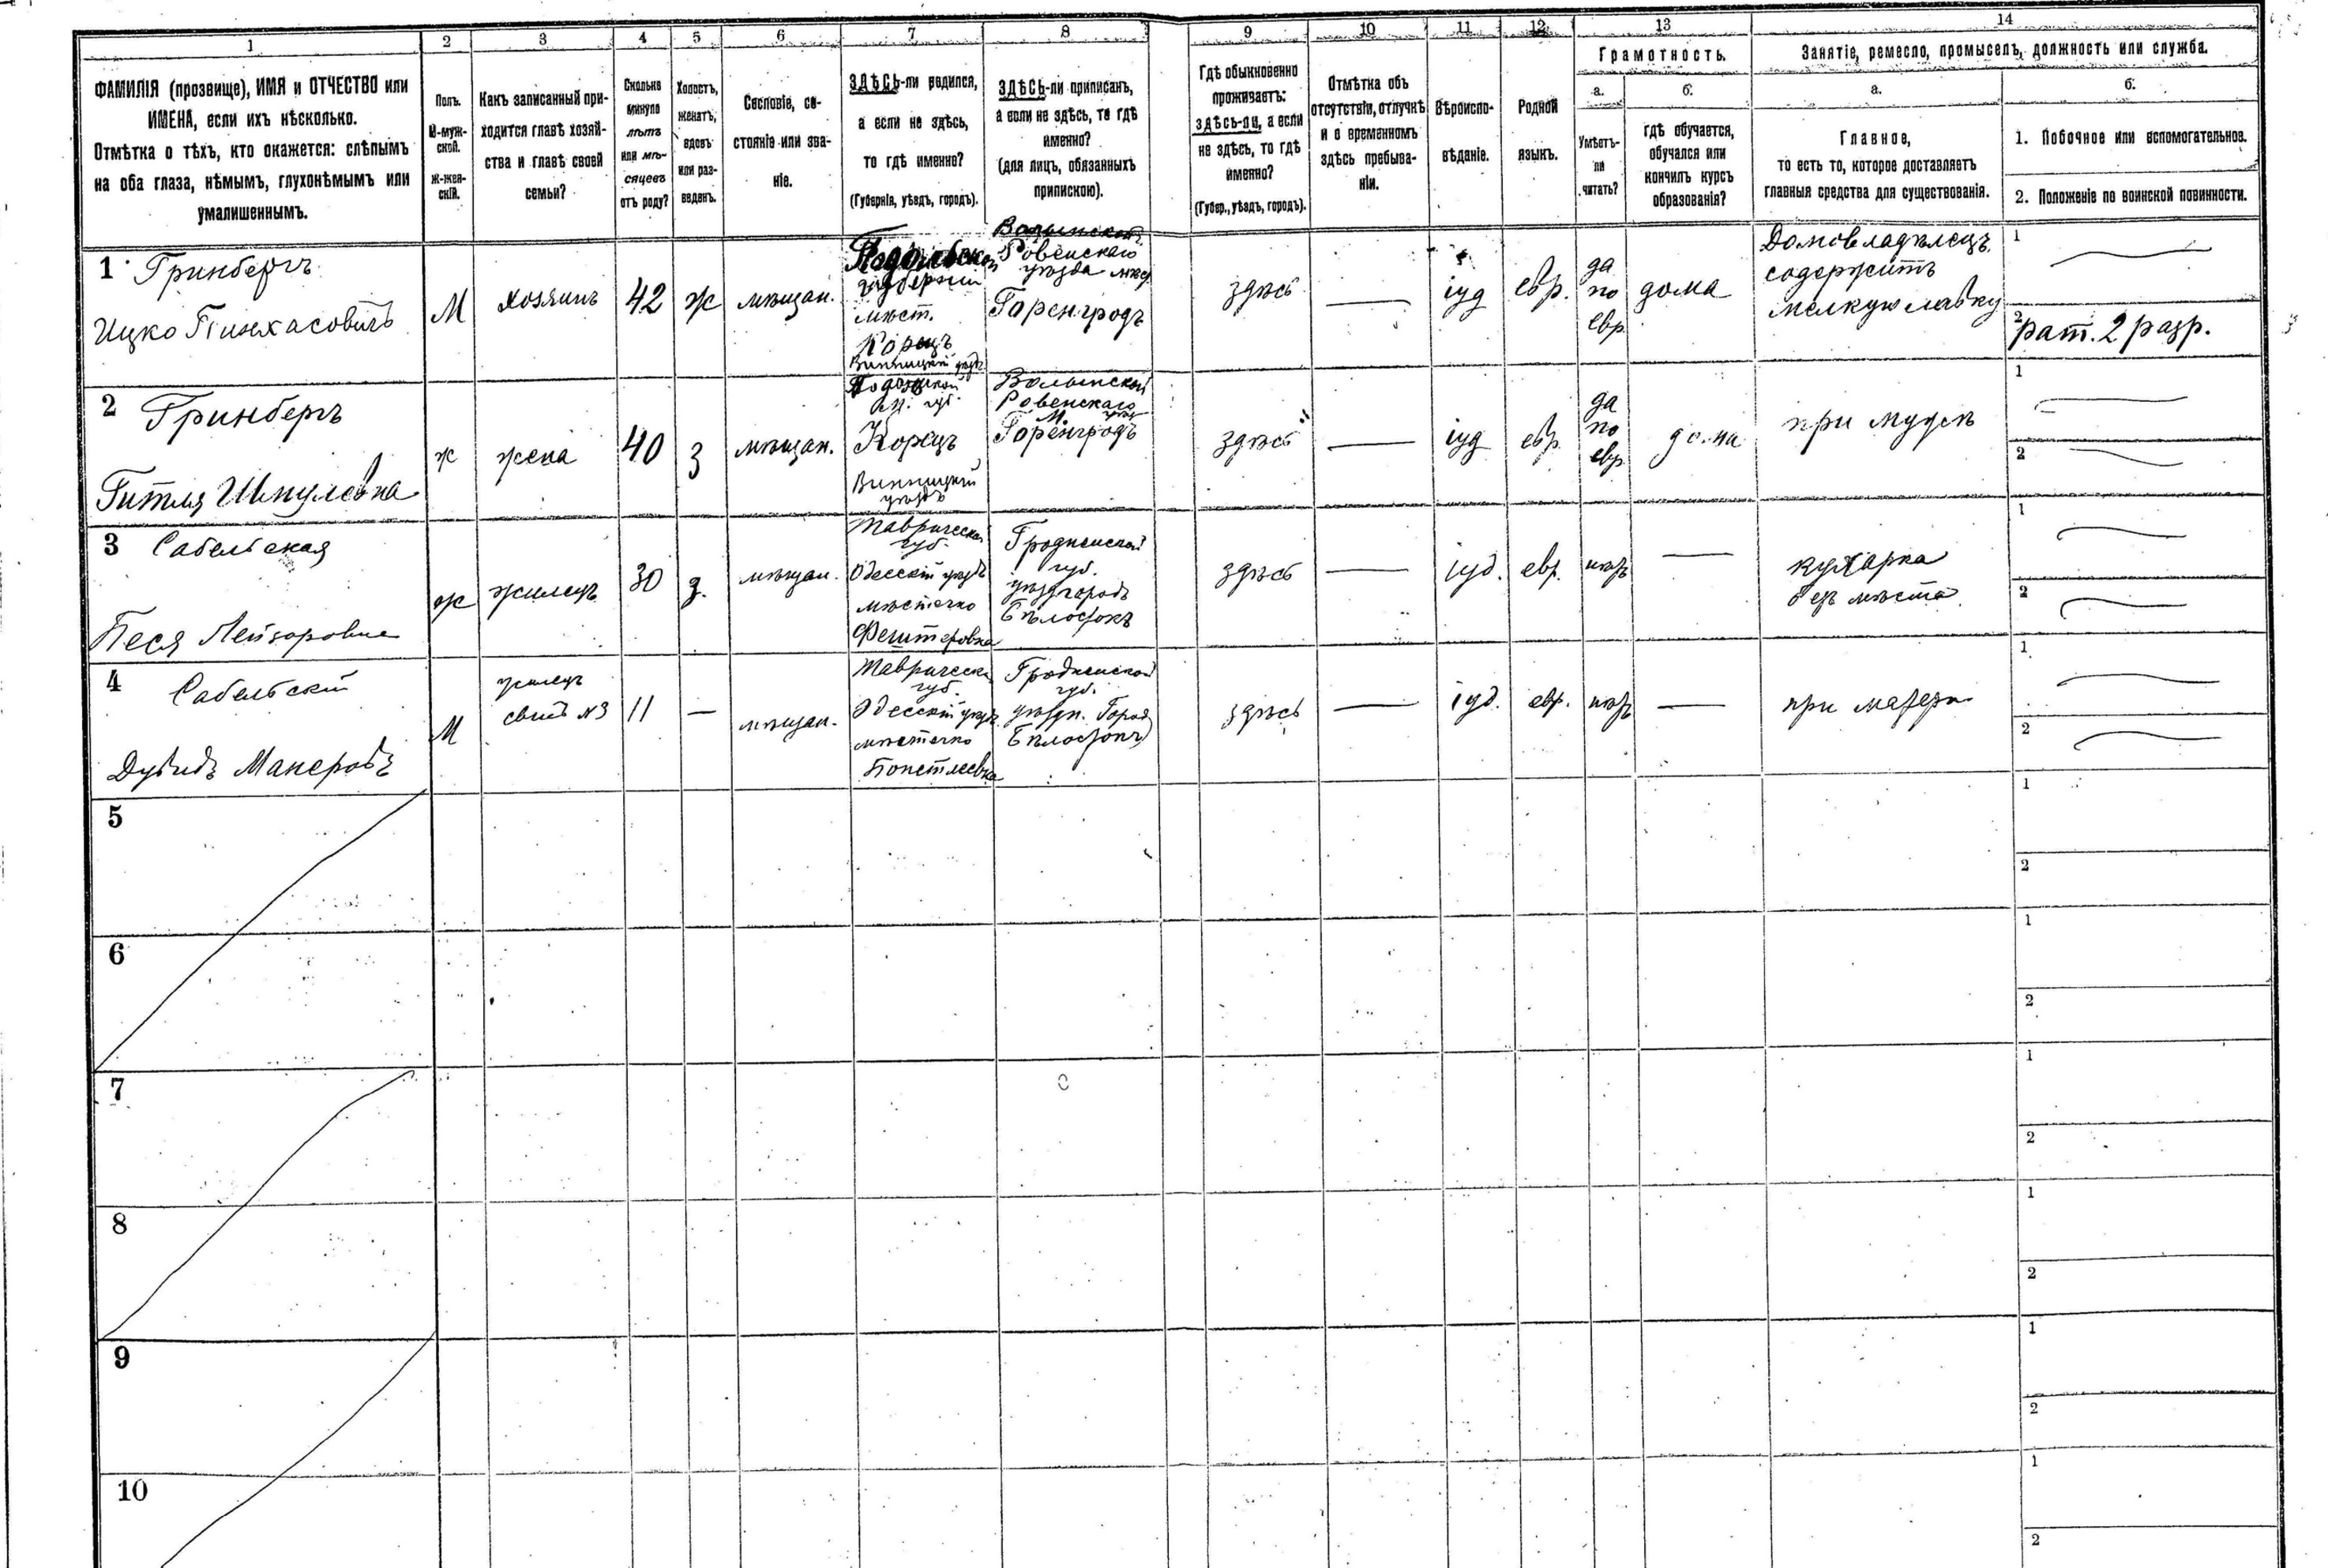 1 2 3 4 5 6 7 8 9 10 11 12 13 14
ФАМИЛІЯ (прозвище), ИМЯ и ОТЧЕСТВО или
ИМЕНА, если ихъ нѣсколько.
Отмѣтка о тѣхъ, кто окажется: слѣпымъ
на оба глаза, нѣмымъ, глухонѣмымъ или
умалишеннымъ.
Полъ.
М-муж-
ской.
Ж-жен-
скій.
Какъ записанный при-
ходится главѣ хозяй-
ства и главѣ своей
семьи?
Сколько
минуло
лѣтъ
или мѣ-
сяцевъ
отъ роду?
Холостъ,
женатъ,
вдовъ
или раз-
веденъ.
Сословіе, со-
стояніе или зва-
ніе.
ЗДѢСЬ-ли родился,
а если не здѣсь,
то гдѣ именно?
(Губернія, уѣздъ, городъ).
ЗДѢСЬ-ли приписанъ,
а если не здѣсь, то гдѣ
именно?
(для лицъ, обязанныхъ
припискою).
Гдѣ обыкновенно
проживаетъ:
здѣсь-ли, а если
не здѣсь, то гдѣ
именно?
(Губер., уѣздъ, городъ).
Отмѣтка объ
отсутствіи, отлучкѣ
и о временномъ
здѣсь пребыва-
ніи.
Вѣроиспо-
вѣданіе.
Родной
языкъ.
Грамотность.
а.
Умѣетъ-
ли
читать?
б.
гдѣ обучается,
обучался или
кончилъ курсъ
образованія?
Занятіе, ремесло, промыселъ, должность или служба.
а.
Главное,
то есть то, которое доставляетъ
главныя средства для существованія.
б.
1. Побочное или вспомогательное.
2. Положеніе по воинской повинности.
1 Гринбергъ
Ицко Пинхасовичъ
М
хозяинъ
42
ж
мѣщан.
губерніи
мѣст.
Корецъ
Винницкій уѣздъ
Волынской
Ровенскаго
уѣзда мѣст
Горенградъ
здѣсь
—
іуд
евр.
да
по
евр
дома
Домовладѣлецъ
содержитъ
мелкую лавку
1 —
2 рат. 2 разр.
2 Гринбергъ
Гитля Шмулевна
ж
жена
40
з
мѣщан.
Корецъ
Винницкій
уѣздъ
Волынской
Ровенскаго
уѣзд
М.
Горенградъ
здѣсь
—
іуд
евр.
да
по
евр
дома
при мужѣ
1 —
2 —
3 Сабельская
Песя Лейзоровна
ж
жилецъ
30
з.
мѣщан.
Таврической
губ.
Одесскій уѣздъ
мѣстечко
Гродненской
губ.
уѣзд городъ
Бѣлостокъ
здѣсь
—
іуд.
евр.
нѣтъ
—
кухарка
безъ мѣста
1 —
2 —
4 Сабельскій
Дувидъ
М
жилецъ
сынъ №3
11
—
мѣщан.
Таврической
губ.
Одесскій уѣздъ
мѣстечко
Гродненской
губ.
уѣздн. Город
Бѣлостокъ
здѣсь
—
іуд.
евр.
нѣтъ
—
при матери
1 —
2 —
5
1
2
6
1
2
7
1
2
8
1
2
9
1
2
10
1
2